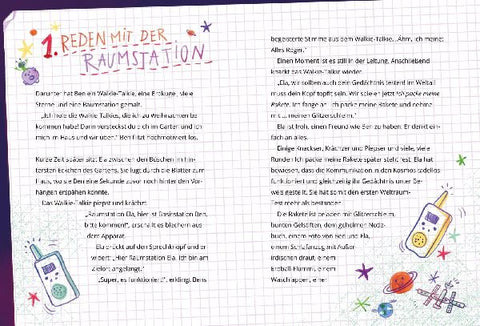 1. REDEN MIT DER
RAUMSTATION
Darunter hat Ben ein Walkie-Talkie, eine Erdkugel, viele
Sterne und eine Raumstation gemalt.
„Ich hole die Walkie-Talkies, die ich zu Weihnachten be-
kommen habe! Dann versteckst du dich im Garten und ich
mich im Haus und wir üben.“ Ben flitzt hochmotiviert los.
Kurze Zeit später sitzt Ela zwischen den Büschen im hin-
tersten Eckchen des Gartens. Sie lugt durch die Blätter zum
Haus, wo sie Ben eine Sekunde zuvor noch hinter den Vor-
hängen erspähen konnte.
Das Walkie-Talkie piepst und krächzt.
„Raumstation Ela, hier ist Basisstation Ben,
bitte kommen!“, erschallt es blechern aus
dem Apparat.
Ela drückt auf den Sprechknopf und er-
widert: „Hier Raumstation Ela. Ich bin am
Zielort angelangt.“
„Super, es funktioniert!“, erklingt Bens
begeisterte Stimme aus dem Walkie-Talkie. „Ähm, ich meine:
Alles Roger.“
Einen Moment ist es still in der Leitung. Anschließend
knarkt das Walkie-Talkie wieder.
„Ela, wir sollten auch dein Gedächtnis testen! Im Weltall
muss dein Kopf topfit sein. Wir spielen jetzt Ich packe meine
Rakete. Ich fange an: Ich packe meine Rakete und nehme
mit ... meinen Glitzerschleim.“
Ela ist froh, einen Freund wie Ben zu haben. Er denkt ein-
fach an alles.
Einige Knackser, Krächzer und Piepser und viele, viele
Runden Ich packe meine Rakete später steht fest: Ela hat
bewiesen, dass die Kommunikation in den Kosmos tadellos
funktioniert und gleichzeitig ihr Gedächtnis unter Be-
weis gestellt. Sie hat somit den ersten Weltraum-
Test mehr als bestanden.
Die Rakete ist beladen mit Glitzerschleim,
bunten Gelstiften, dem geheimen Notiz-
buch, einem Foto von Ben und Ela,
einem Schlafanzug mit Außer-
irdischen drauf, einem
Erdball-Flummi, einem
Waschlappen, einer